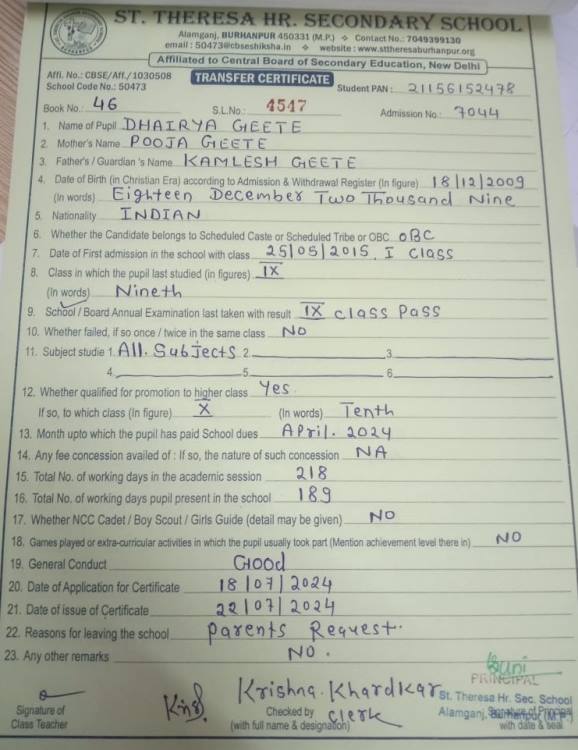 ST. THERESA HR. SECONDARY SCHOOL
Alamganj, BURHANPUR 450331 (M.P.) ❖ Contact No.: 7049399130
email : 50473@cbseshiksha.in ❖ website : www.sttheresaburhanpur.org
Affiliated to Central Board of Secondary Education, New Delhi
Affi. No.: CBSE/Aff./1030508 TRANSFER CERTIFICATE
School Code No.: 50473 Student PAN : 21156152478
Book No.: 46 S.L.No.: 4547 Admission No.: 7044
1. Name of Pupil DHAIRYA GEETE
2. Mother's Name POOJA GEETE
3. Father's / Guardian 's Name KAMLESH GEETE
4. Date of Birth (in Christian Era) according to Admission & Withdrawal Register (In figure) 18/12/2009
(In words) Eighteen December Two Thousand Nine
5. Nationality INDIAN
6. Whether the Candidate belongs to Scheduled Caste or Scheduled Tribe or OBC OBC
7. Date of First admission in the school with class 25/05/2015, I Class
8. Class in which the pupil last studied (in figures) IX
(In words) Nineth
9. School / Board Annual Examination last taken with result IX class Pass
10. Whether failed, if so once / twice in the same class NO
11. Subject studie 1. All. Subjects 2. 3.
4. 5. 6.
12. Whether qualified for promotion to higher class Yes
If so, to which class (In figure) X (In words) Tenth
13. Month upto which the pupil has paid School dues April. 2024
14. Any fee concession availed of : If so, the nature of such concession NA
15. Total No. of working days in the academic session 218
16. Total No. of working days pupil present in the school 189
17. Whether NCC Cadet / Boy Scout / Girls Guide (detail may be given) NO
18. Games played or extra-curricular activities in which the pupil usually took part (Mention achievement level there in) NO
19. General Conduct Good
20. Date of Application for Certificate 18/07/2024
21. Date of issue of Certificate 22/07/2024
22. Reasons for leaving the school Parents Request.
23. Any other remarks NO.
PRINCIPAL
Krishna. Khardkar St. Theresa Hr. Sec. School
Signature of Checked by Clerk Alamganj, Burhanpur (M.P.) Signature of Principal
Class Teacher (with full name & designation) with date & seal